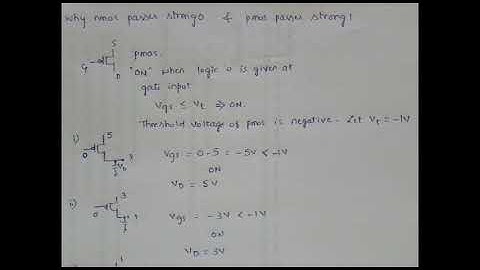 why nmos passes strong 0 & pmos passes strong 1
S
G
D
pmos.
"ON" when logic 0 is given at
gate input
Vgs ≤ Vt ⇒ ON.
Threshold voltage of pmos is negative - Let Vt = -1V
i)
5
0
3
VD
Vgs = 0-5 = -5V < -1V
ON
VD = 5V
ii)
3
0
1
Vgs = -3V < -1V
ON
VD = 3V
1